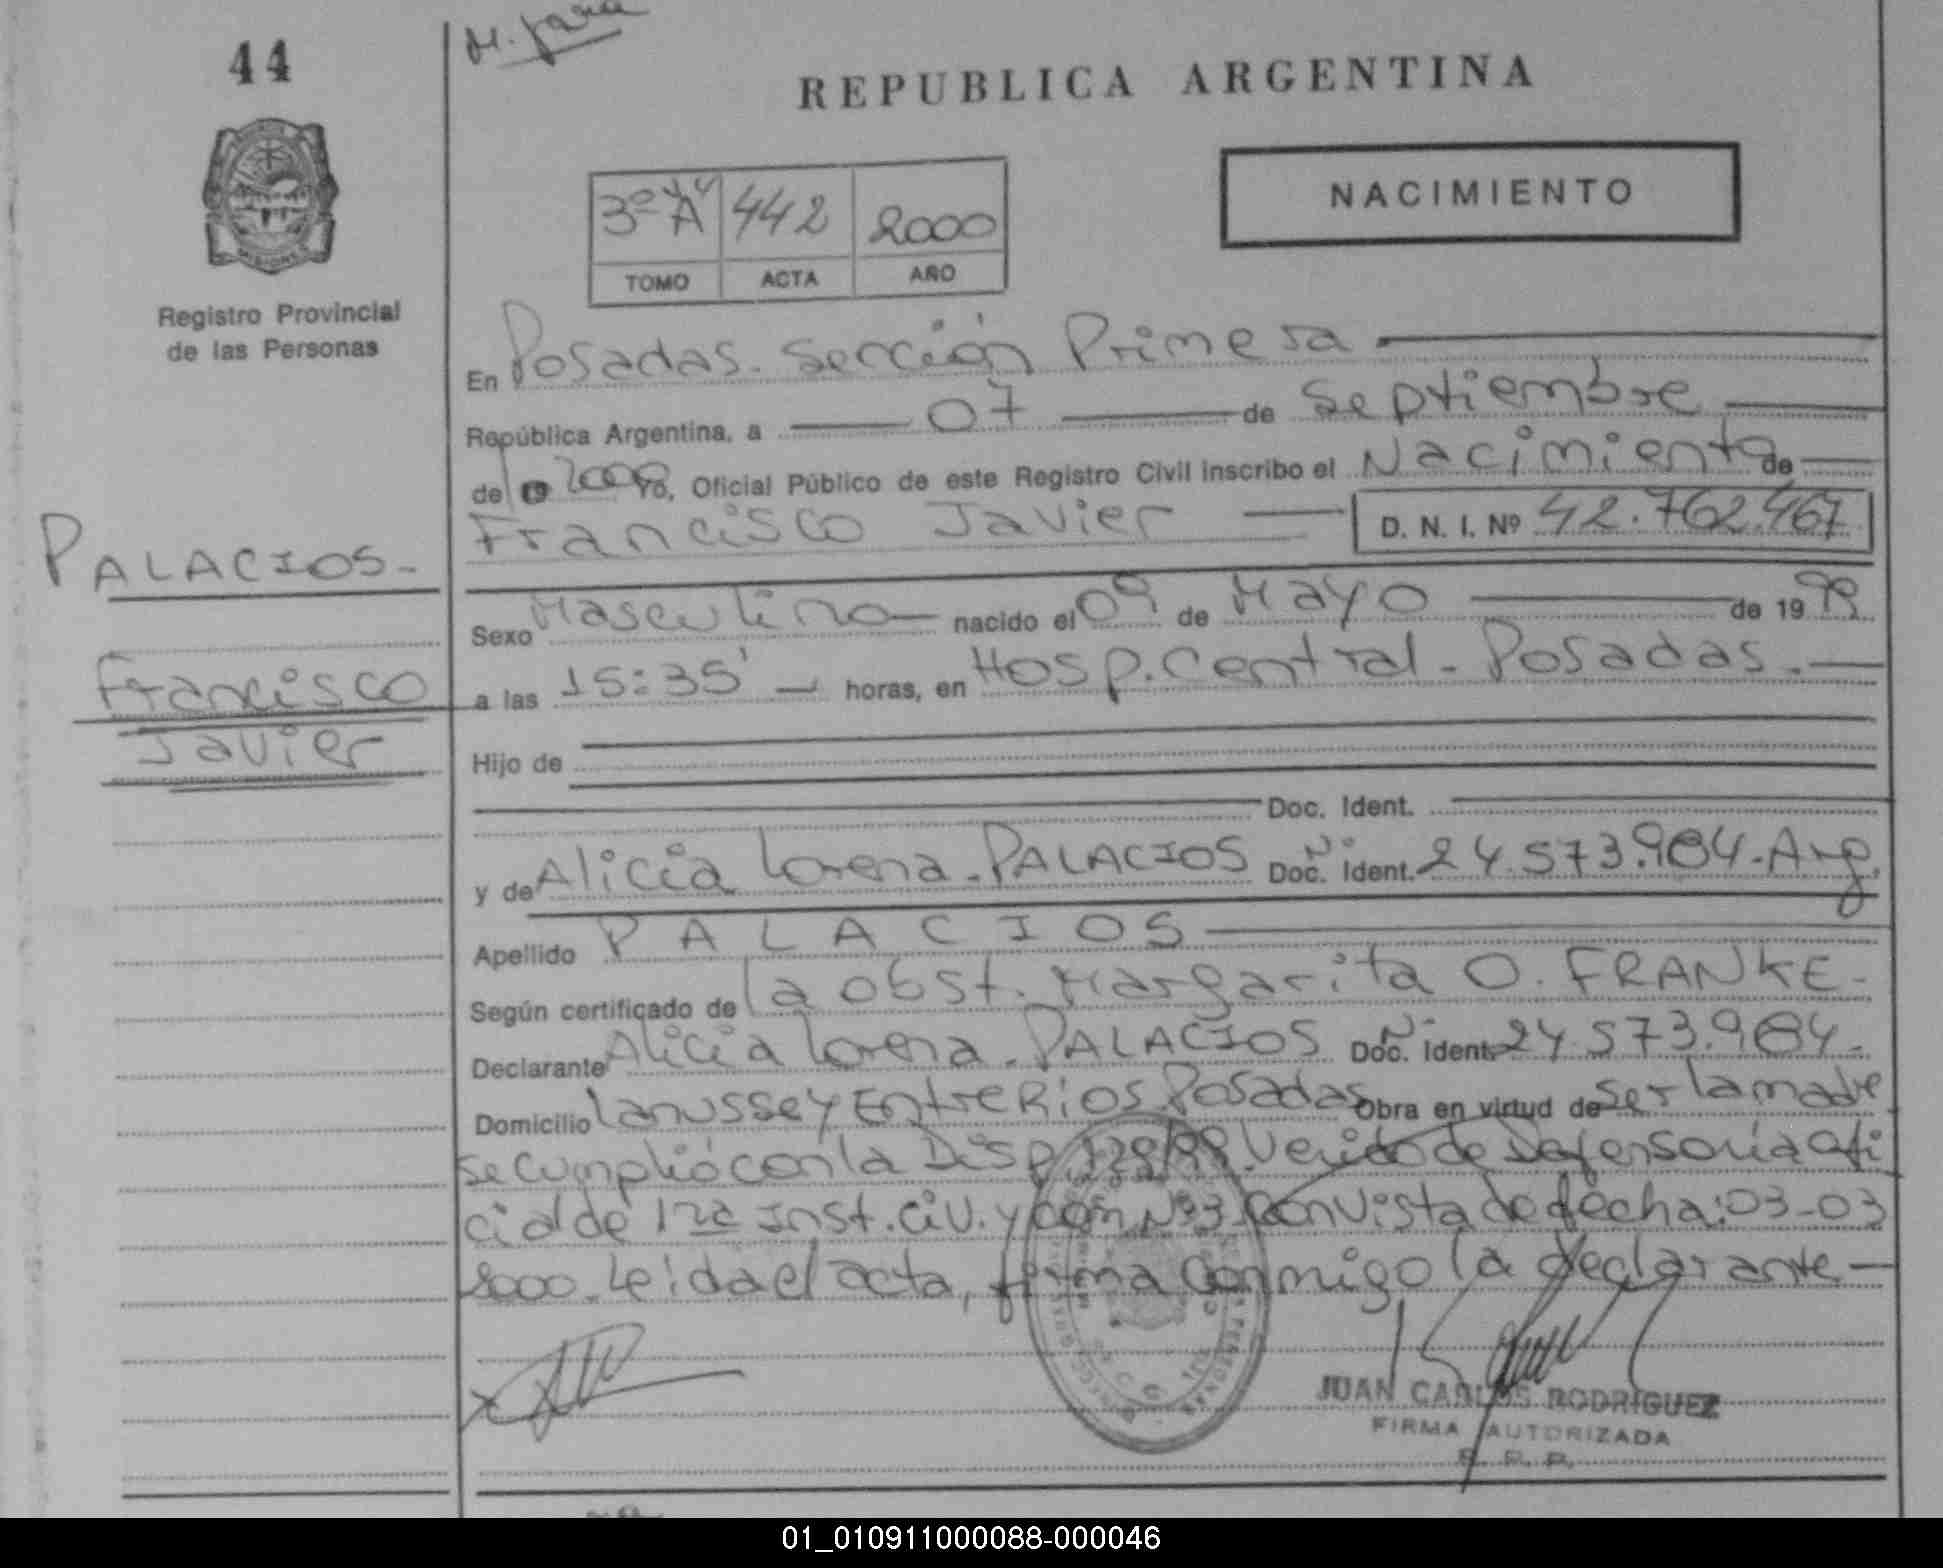 44
REPUBLICA ARGENTINA
NACIMIENTO
3º "A" 442 2000
TOMO ACTA AÑO
Registro Provincial
de las Personas
En Posadas. Sección Primera
República Argentina, a 07 de Septiembre
de 2000 Yo, Oficial Público de este Registro Civil inscribo el Nacimiento de
Francisco Javier D. N. I. Nº 42.762.467
PALACIOS-
Francisco
Javier
Sexo Masculino nacido el 09 de Mayo de 1999
a las 15:35' horas, en Hosp. Central - Posadas.
Hijo de
Doc. Ident.
y de Alicia Lorena PALACIOS Doc. Ident. Nº 24.573.984. Arg.
Apellido PALACIOS
Según certificado de la obst. Margarita O. FRANKE-
Declarante Alicia Lorena PALACIOS Doc. Ident. Nº 24.573.984-
Domicilio Lanusse y Entre Rios Posadas Obra en virtud de ser la madre
se cumplió con la Disp. 128/99. Venido de Defensoría Ofi
cial de 1ra Inst. Civ. y Com Nº 3 Con vista de fecha: 03-03
2000. Leída el acta, firma conmigo la declarante-
JUAN CARLOS RODRIGUEZ
FIRMA AUTORIZADA
R. P. P.
01_010911000088-000046